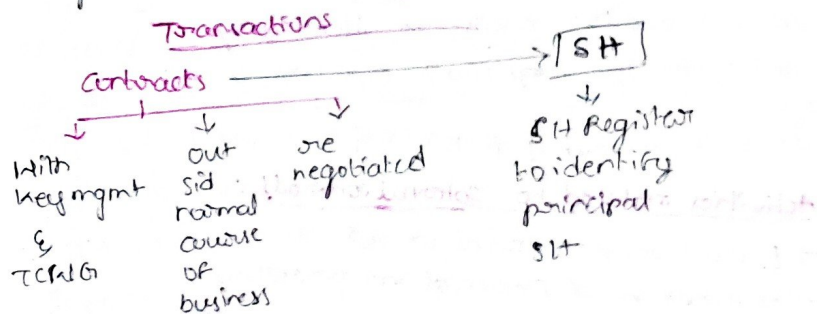 Transactions
Contracts
SH
With
Key mgmt
&
TCPWG
out
sid
normal
course
of
business
re
negotiated
SH Register
to identify
principal
SH